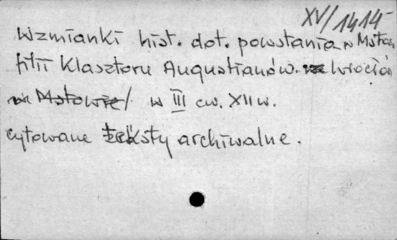 XV/1414
Wzmianki hist. dot. powstania w Mstow
filii Klasztoru Augustianów. Wrocław
w Mstowie/ w III ćw. XII w.
cytowane teksty archiwalne.